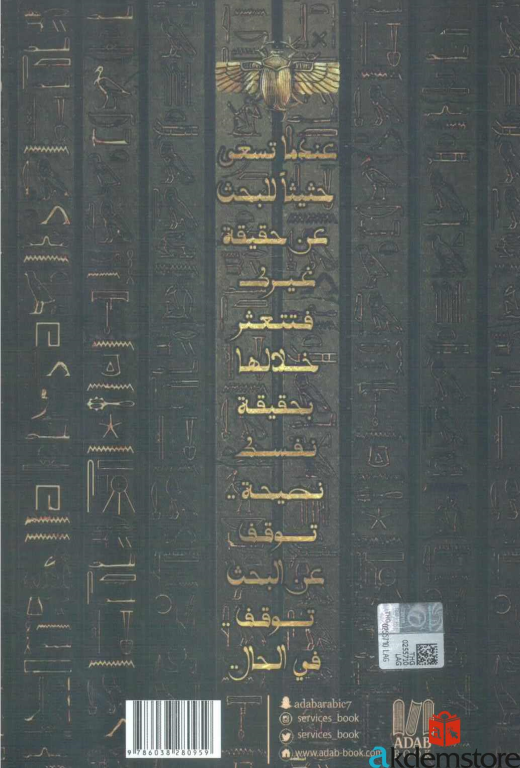 عندما تسعى
حثيثاً للبحث
عن حقيقة
غيرك
فتتعثر
خلالها
بحقيقة
نفسك
نصيحة..
توقف
عن البحث
توقف..
في الحال.
adabarabic7
services_book
services_book
www.adab-book.com
9 786038 280959
ADAB
akdemstore